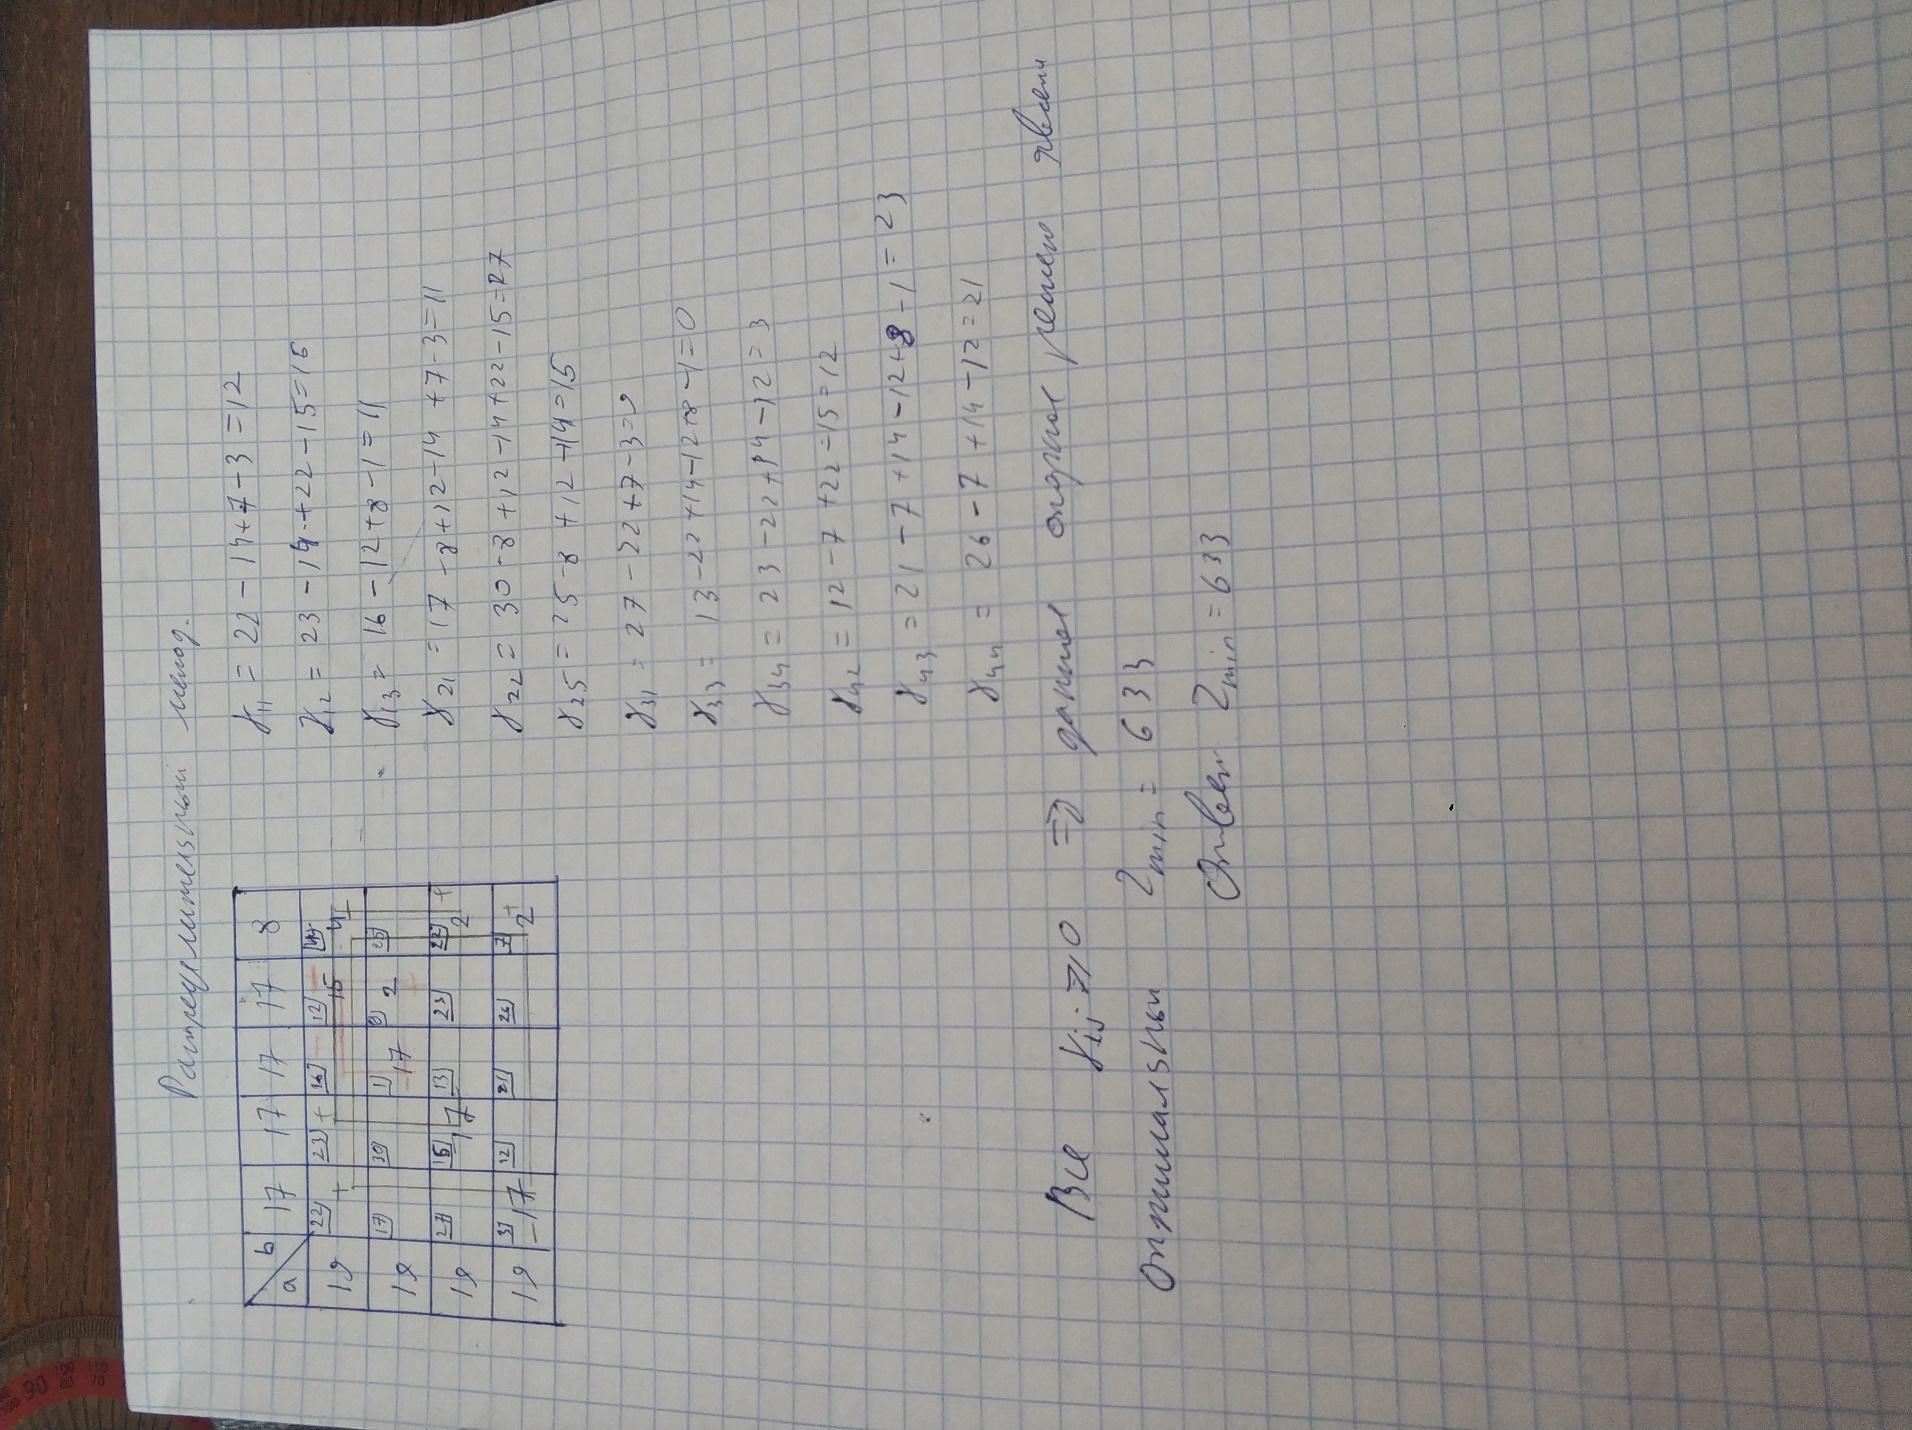 Распределительный метод.
a b 17 17 17 17 8
19 22 + 23 + 16 12 15 14 4
19 17 30 1 17 8 2 25
19 27 15 17 13 23 22 2 +
19 3 -17 12 21 26 7 2 +
γ11 = 22 - 14+7-3=12
γ12 = 23 - 14+22-15=16
γ13 = 16-12+8-1=11
γ21 = 17-8+12-14+7-3=11
γ22 = 30-8+12-14+22-15=27
γ25 = 25-8+12-14=15
γ31 = 27-22+7-3=9
γ33 = 13-22+14-12+8-1=0
γ34 = 23-22+14-12=3
γ42 = 12-7+22-15=12
γ43 = 21-7+14-12+8-1=23
γ44 = 26-7+14-12=21
Все γij ⩾ 0 ⇒ данное опорное решен явлен
Оптимальным Zmin = 633
Ответ Zmin = 633